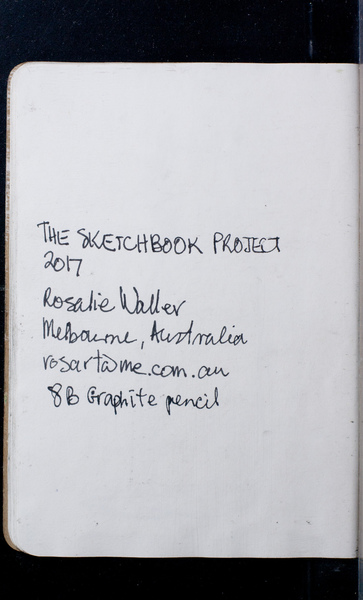 THE SKETCHBOOK PROJECT
2017
Rosalie Waller
Melbourne, Australia
rosart@me.com.au
8B Graphite pencil